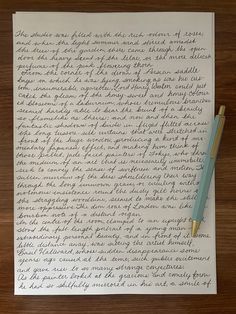 The studio was filled with the rich odour of roses,
and when the light summer wind stirred amidst
the trees of the garden, there came through the open
door the heavy scent of the lilac, or the more delicate
perfume of the pink-flowering thorn.
From the corner of the divan of Persian saddle-
bags on which he was lying, smoking, as was his cus-
tom, innumerable cigarettes, Lord Henry Wotton could just
catch the gleam of the honey-sweet and honey-colour-
ed blossoms of a laburnum, whose tremulous branches
seemed hardly able to bear the burden of a beauty
so flamelike as theirs; and now and then the
fantastic shadows of birds in flight flitted across
the long tussore-silk curtains that were stretched in
front of the huge window, producing a kind of mo-
mentary Japanese effect, and making him think of
those pallid jade-faced painters of Tokyo who, through
the medium of an art that is necessarily immobile,
seek to convey the sense of swiftness and motion. The
sullen murmur of the bees shouldering their way
through the long unmown grass, or circling with
monotonous insistence round the dusty gilt horns of
the straggling woodbine, seemed to make the stillness
more oppressive. The dim roar of London was like
the bourdon note of a distant organ.
In the centre of the room, clamped to an upright easel,
stood the full-length portrait of a young man of
extraordinary personal beauty, and in front of it, some
little distance away, was sitting the artist himself,
Basil Hallward, whose sudden disappearance some
years ago caused, at the time, such public excitement
and gave rise to so many strange conjectures.
As the painter looked at the gracious and comely form
he had so skilfully mirrored in his art, a smile of